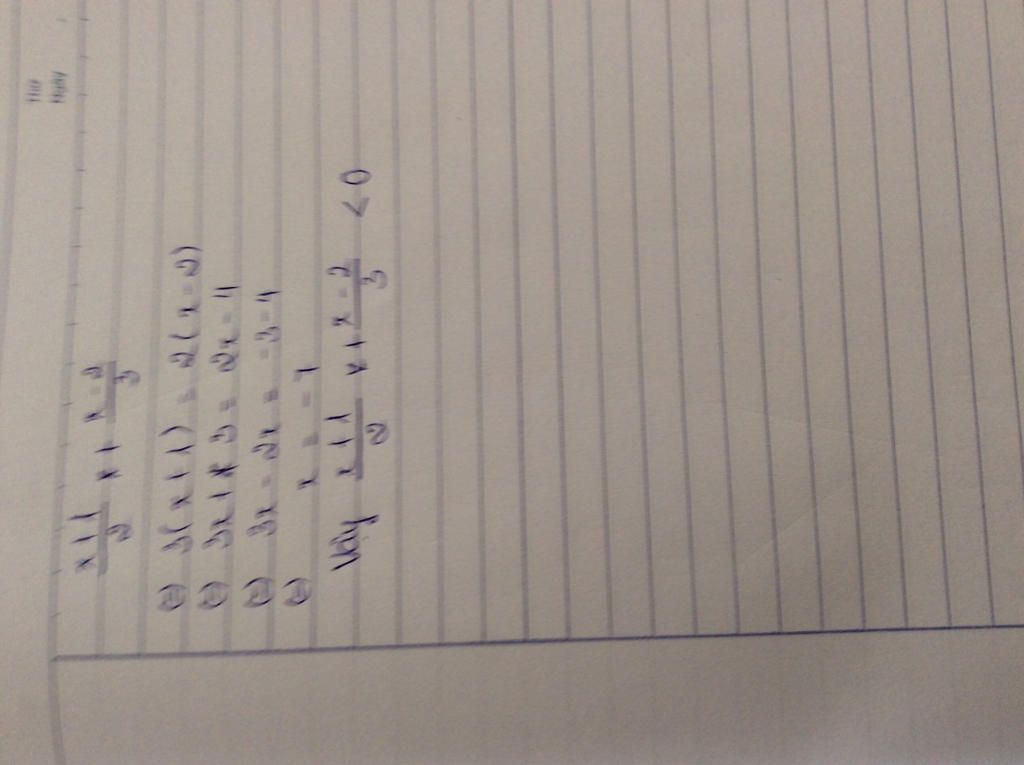 Thứ
Ngày
x+1/2 x + x-2/3
⇔ 3(x+1) = 2(x-2)
⇔ 3x+3 = 2x-4
⇔ 3x-2x = -3-4
⇔ x = -7
Vậy x+1/2 x + x-2/3 < 0